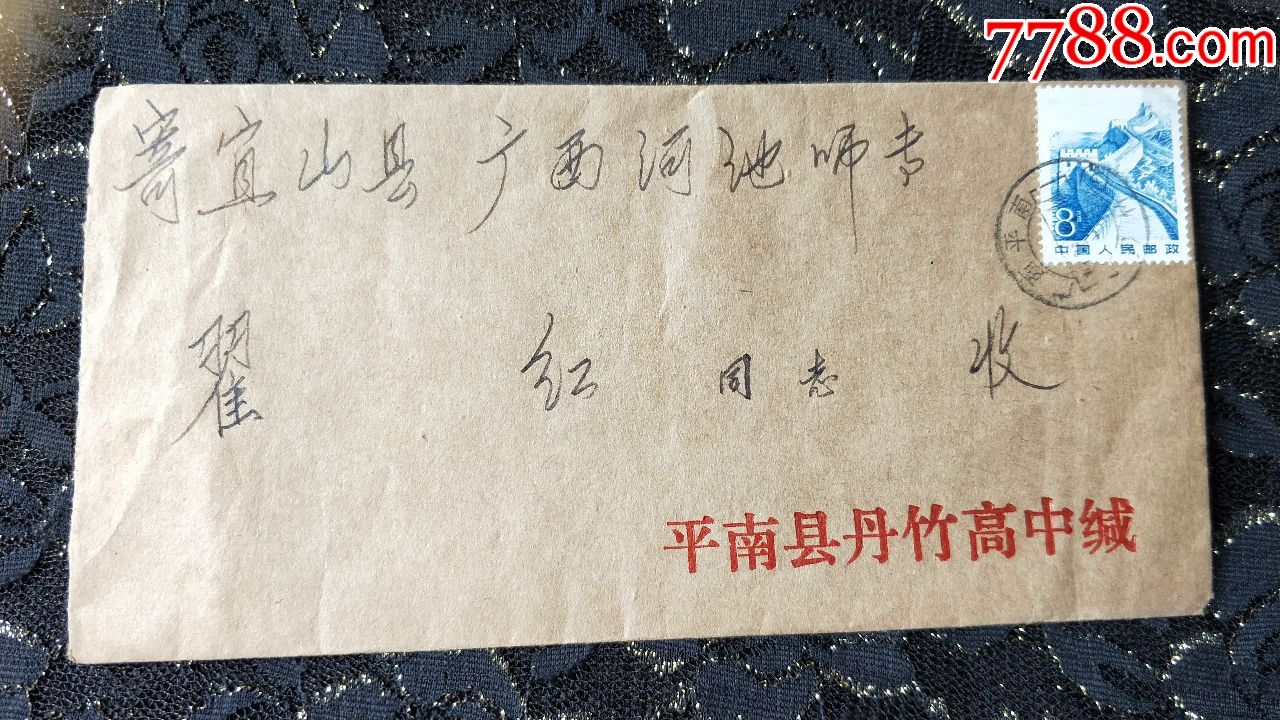 7788.com
寄宜山县广西河池师专
8
中国人民邮政
平南
翟红同志收
平南县丹竹高中缄